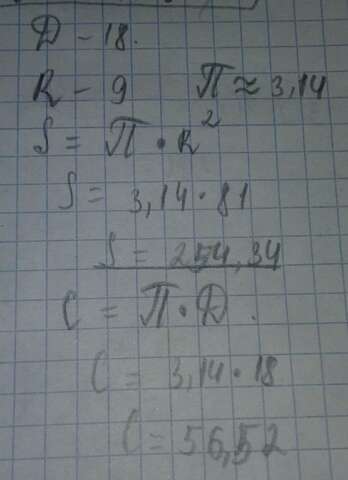 Д - 18.
R - 9 П ≈ 3,14
S = П · R²
S = 3,14 · 81
S = 254,34
C = П · Д.
C = 3,14 · 18
C = 56,52